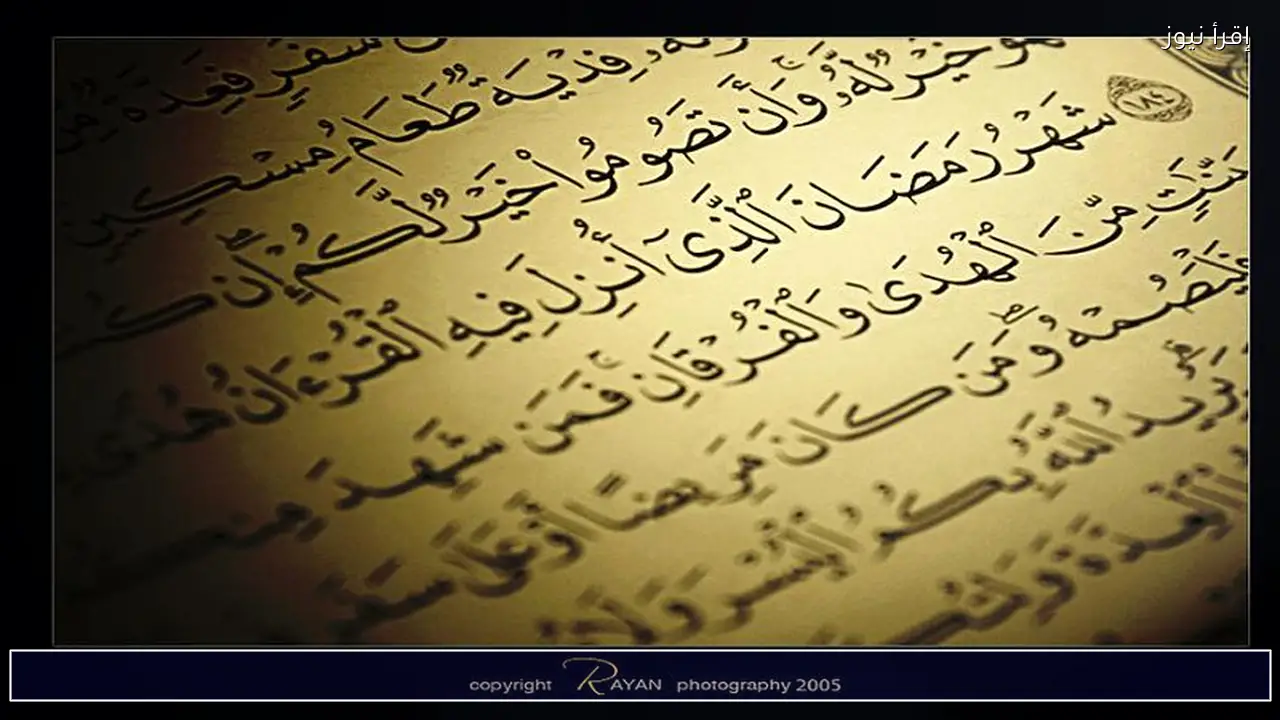 إقرأ نيوز
سَفَرٍ فَعِدَّةٌ مِّنْ
فِدْيَةٌ طَعَامُ مِسْكِينٍ
هُوَ خَيْرٌ لَّهُۥ وَأَن تَصُومُوا۟ خَيْرٌ لَّكُمْ إِن
١٨٤ شَهْرُ رَمَضَانَ ٱلَّذِىٓ أُنزِلَ فِيهِ ٱلْقُرْءَانُ هُدًى
مِّنَ ٱلْهُدَىٰ وَٱلْفُرْقَانِ فَمَن شَهِدَ مِنكُمُ
فَلْيَصُمْهُ وَمَن كَانَ مَرِيضًا أَوْ عَلَىٰ سَفَرٍ
يُرِيدُ ٱللَّهُ بِكُمُ ٱلْيُسْرَ وَلَا
ٱلْعِدَّةَ
copyright RAYAN photography 2005